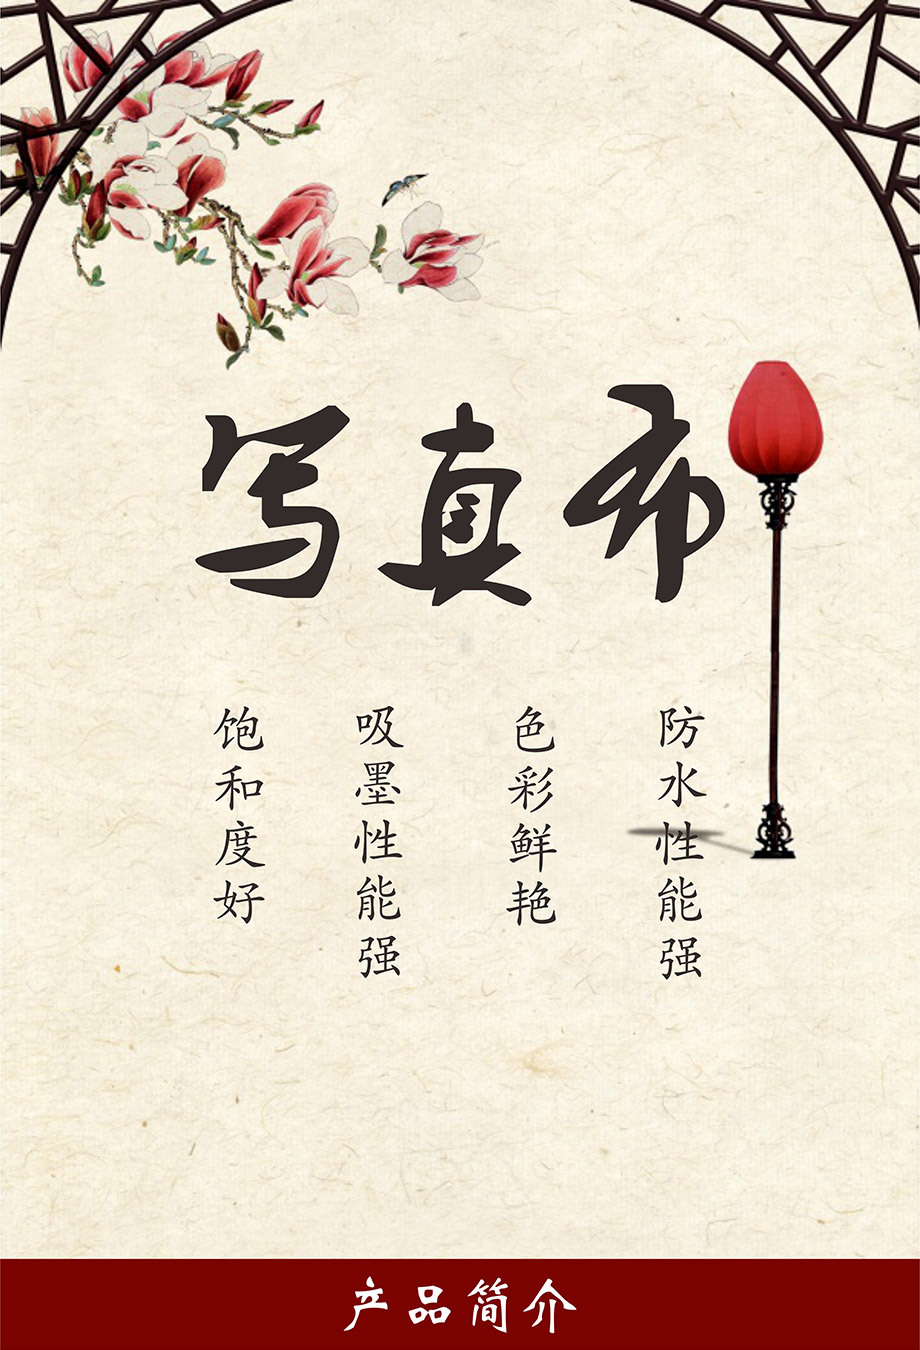 写真布
防水性能强
色彩鲜艳
吸墨性能强
饱和度好
产品简介